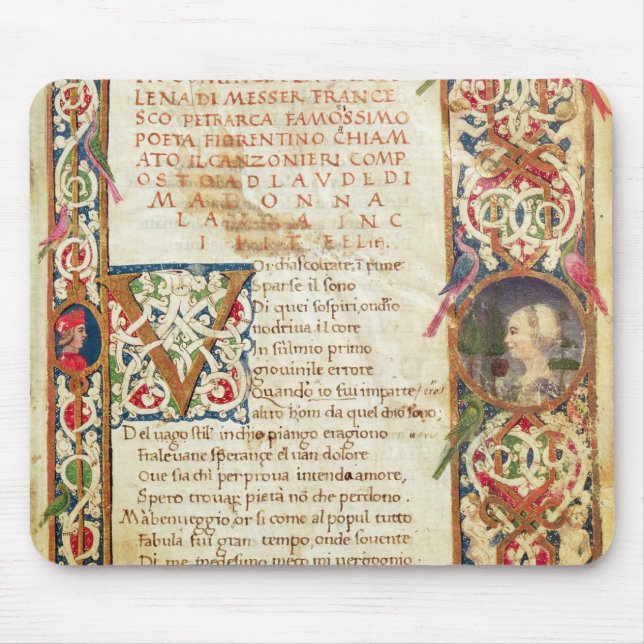 LENA DI MESSER FRANCE
SCO PETRARCA FAMOSSIMO
POETA FIORENTINO CHIAM
ATO IL CANZONIERI COMP
OSTO AD LAVDE DI
MADONNA
LAVRA INC
V
Oi chascoltate, ī rime
Sparse il sono
Di quei sospiri, ondio
nodriua, il core
In sūlmio primo
giouinile errore
Quando io fui imparte
altro hom da quel chio sono:
Del uago stil' in chio piango eragiono
Fraleuane sperançe el uan dolore
Oue sia chi per proua intenda amore,
Spero trouar pietà nō che perdono.
Ma ben ueggio, or si come al popul tutto
Fabula fui gran tempo, onde souente
Di me medesimo meco mi uergogno